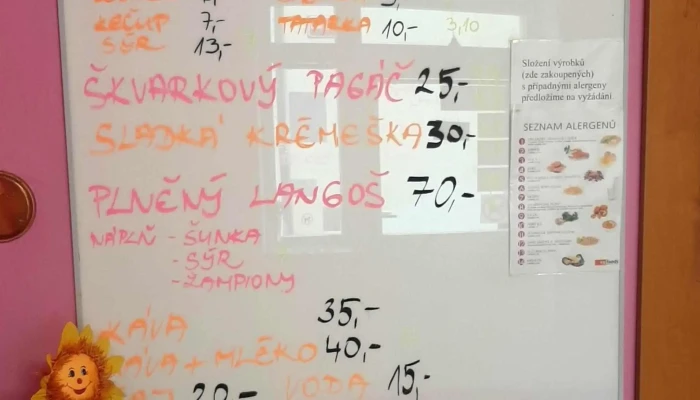 KEČUP 7,- TATARKA 10,- 3,10
SÝR 13,-
ŠKVARKOVÝ PAGÁČ 25,-
SLADKÁ KRÉMEŠKA 30,-
PLNĚNÝ LANGOŠ 70,-
NÁPLŇ - ŠUNKA
- SÝR
- ŽAMPIONY
KÁVA 35,-
KÁVA + MLÉKO 40,-
ČAJ 20,- VODA 15,-
Složení výrobků
(zde zakoupených)
s případnými alergeny
předložíme na vyžádání
SEZNAM ALERGENŮ